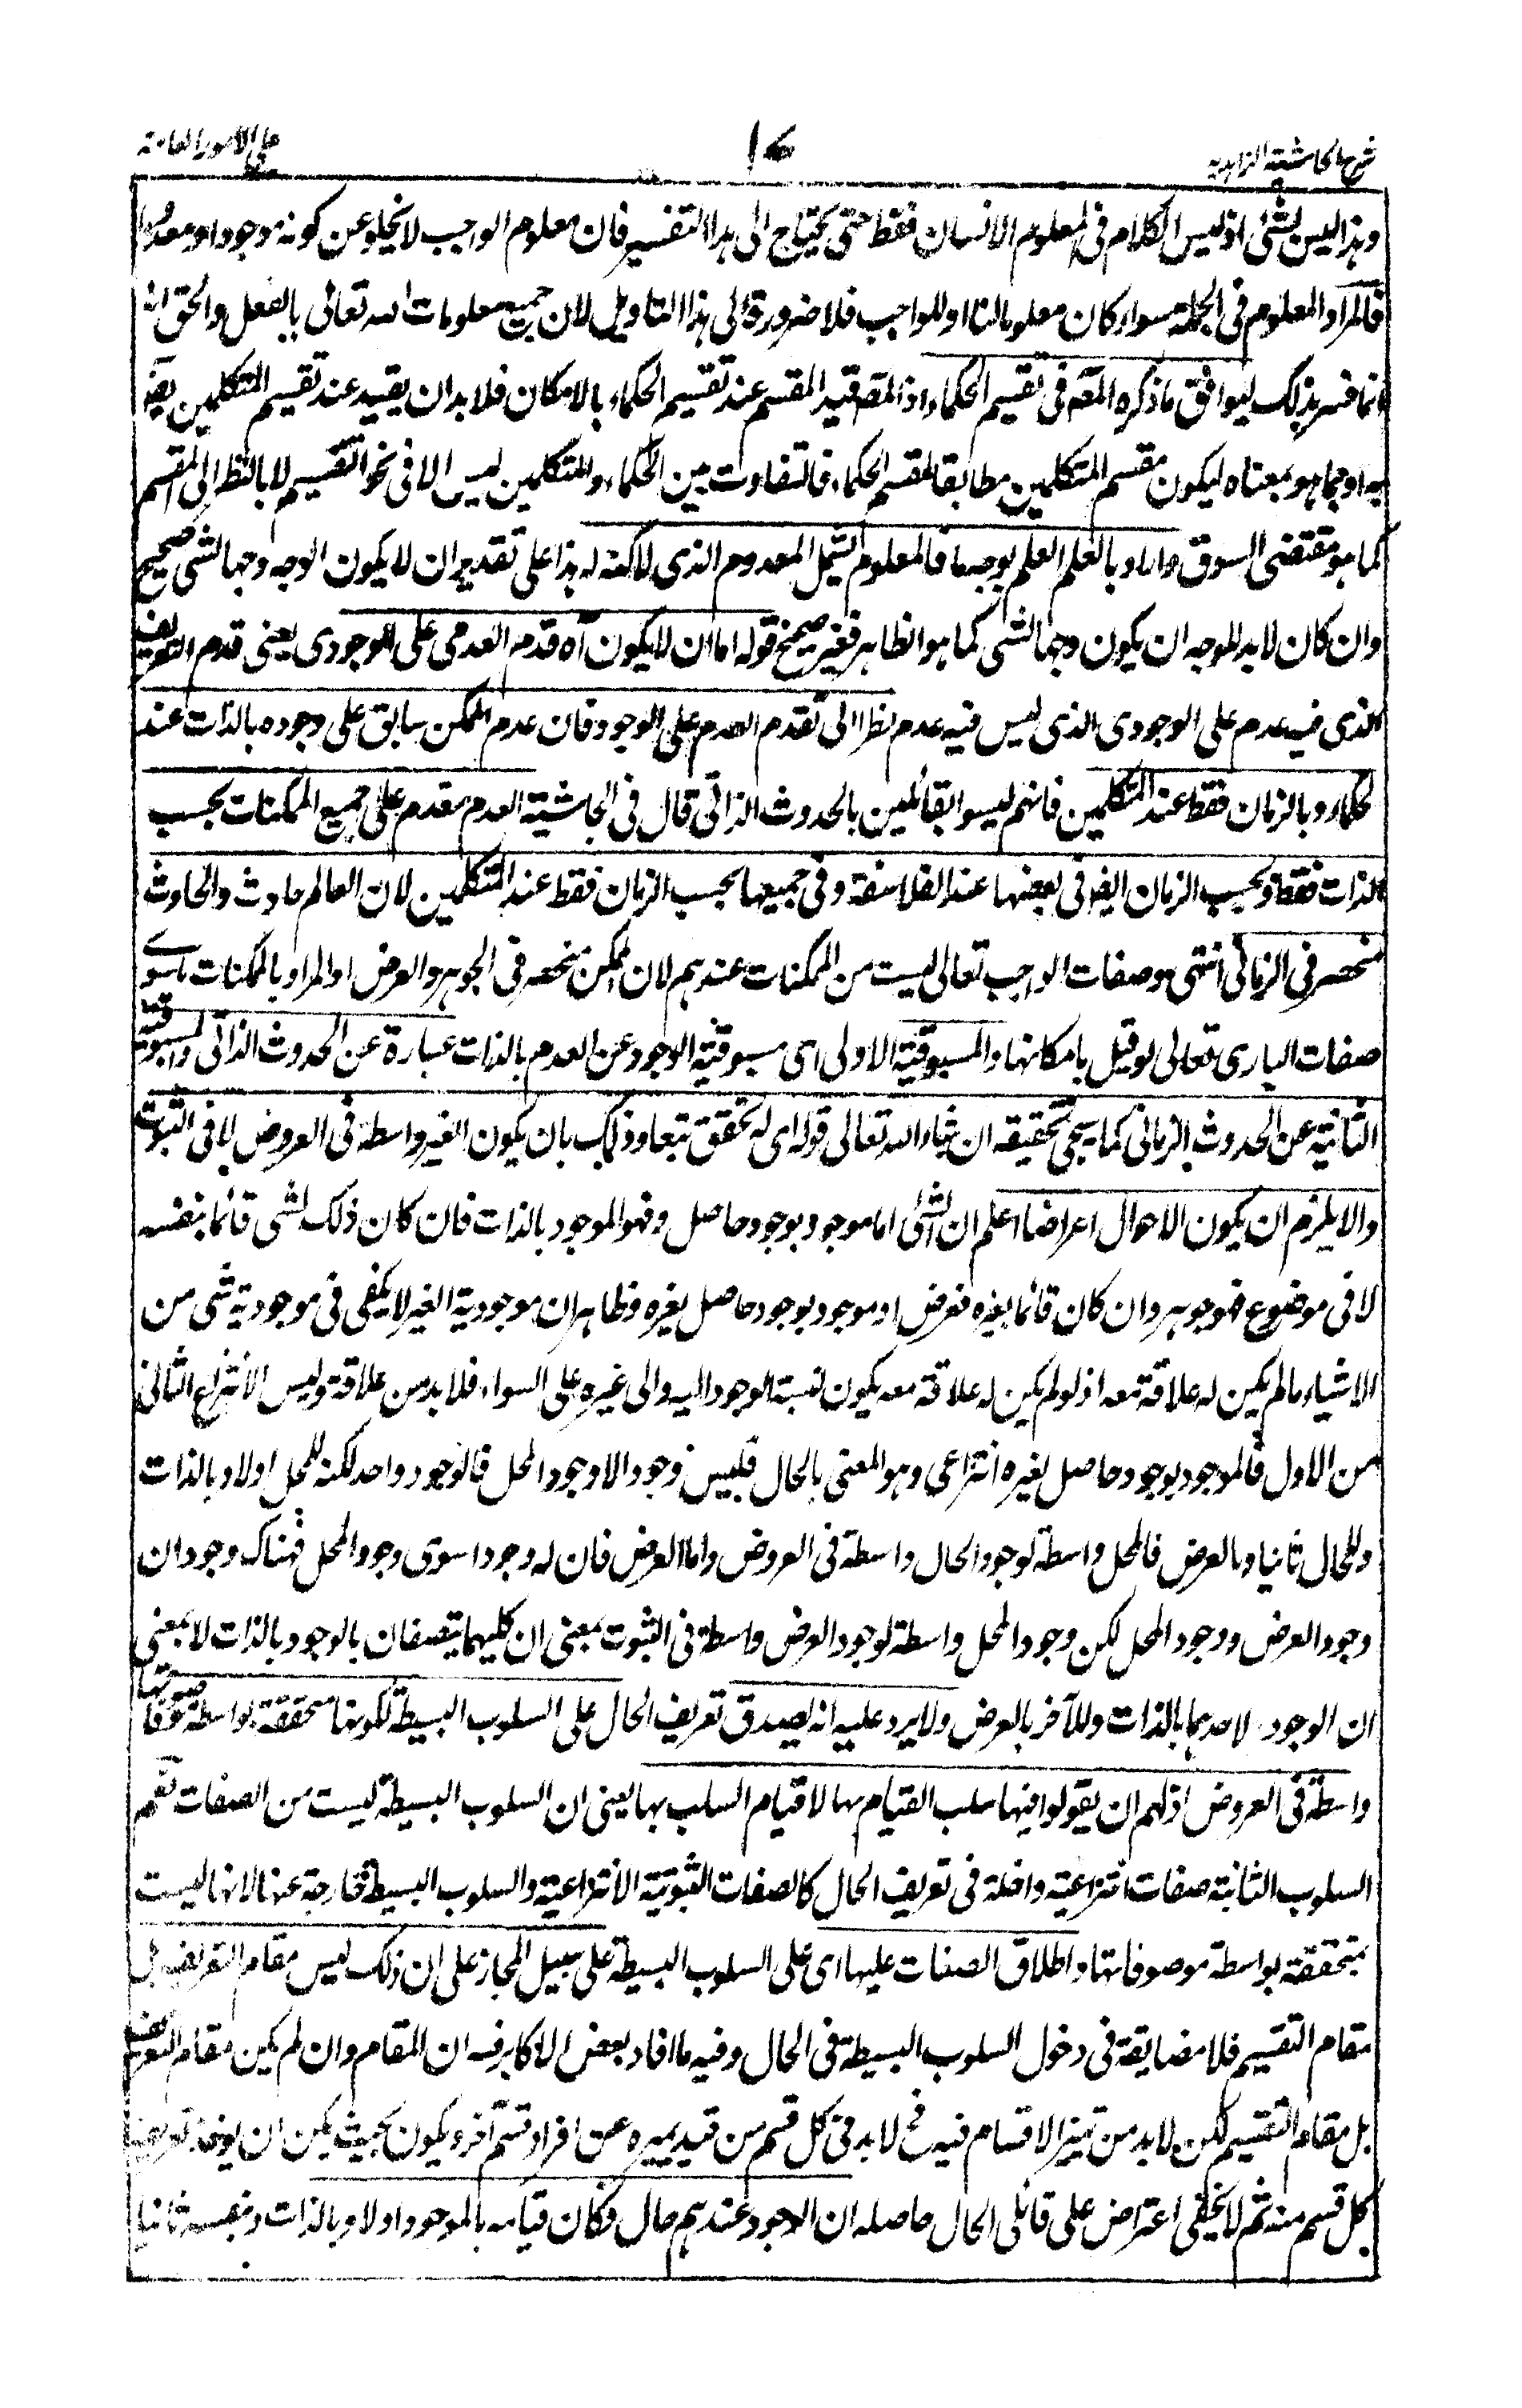 شرح الحاشية الزاهدية
١٧
على الامور العامة
وهذا ليس بشئ اذ ليس الكلام فى المعلوم الانسان فقط حتى يحتاج الى هذا التفسير فان معلوم الواجب لا يخلو عن كونه موجودا او معدوما
فالمراد المعلوم فى الجملة سواء كان معلوما لنا او للواجب فلا ضرورة الى هذا التاويل لان جميع معلومات الله تعالى بالفعل والحق انه
انما فسر بذلك ليوافق ما ذكره المصـ فى تقسيم الحكماء اذ المصـ قيد المقسم عند تقسيم الحكماء بالامكان فلا بد ان يقيد عند تقسيم المتكلمين ايضا
به او بما هو بمعناه ليكون مقسم المتكلمين مطابقا لمقسم الحكماء فالتفاوت بين الحكماء والمتكلمين ليس الا فى نحو التقسيم لا بالنظر الى المقسم
كما هو مقتضى السوق واراد بالعلم العلم بوجه ما فالمعلوم يشمل المعدوم الذى لا كنه له هذا على تقدير ان لا يكون الوجه وجها لشئ صحيح
وان كان لا بد للوجه ان يكون وجها لشئ كما هو الظاهر فغير صحيح قوله اما ان لا يكون آه قدم العدمى على الوجودى يعنى قدم التعريف
الذى فيه عدم على الوجودى الذى ليس فيه عدم نظرا الى تقدم العدم على الوجود فان عدم الممكن سابق على وجوده بالذات عند
لحكماء وبالزمان فقط عند المتكلمين فانهم ليسوا بقائلين بالحدوث الذاتى قال فى الحاشية العدم مقدم على جميع الممكنات بحسب
الذات فقط وبحسب الزمان ايضا فى بعضها عند الفلاسفة وفى جميعها بحسب الزمان فقط عند المتكلمين لان العالم حادث والحادث
منحصر فى الزمانى انتهى وصفات الواجب تعالى ليست من الممكنات عندهم لان الممكن منحصر فى الجوهر والعرض او المراد بالممكنات ما سوى
صفات البارى تعالى لو قيل بامكانها والمسبوقية الاولى اى مسبوقية الوجود عن العدم بالذات عبارة عن الحدوث الذاتى والمسبوقية
الثانية عن الحدوث الزمانى كما سيجئ تحقيقه ان شاء الله تعالى قوله اى له تحقق تبعا وذلك بان يكون الغير واسطة فى العروض لا فى الثبوت
والا يلزم ان يكون الاحوال اعراضا اعلم ان الشئ اما موجود بوجود حاصل وفهو الموجود بالذات فان كان ذلك الشئ قائما بنفسه
لا فى موضوع فهو جوهر وان كان قائما بغيره فعرض او موجود بوجود حاصل بغيره وظاهر ان موجودية الغير لا يكفى فى موجودية شئ من
الاشياء ما لم يكن له علاقة معه اذ لو لم يكن له علاقة معه يكون نسبة الوجود اليه والى غيره على السواء فلا بد من علاقة وليس الا نتزاع الثانى
من الاول فالموجود بوجود حاصل بغيره انتزاعى وهو المعنى بالحال فليس وجود الا وجود المحل فالوجود واحد لكنه للمحل اولا وبالذات
وللحال ثانيا وبالعرض فالمحل واسطة لوجود الحال واسطة فى العروض واما العرض فان له وجودا سوى وجود المحل فهناك وجودان
وجود العرض ووجود المحل لكن وجود المحل واسطة لوجود العرض واسطة فى الثبوت بمعنى ان كليهما يتصفان بالوجود بالذات لا بمعنى
ان الوجود لاحدهما بالذات وللآخر بالعرض ولا يرد عليه انه يصدق تعريف الحال على السلوب البسيطة لكونها متحققة بواسطة موصوفاتها
واسطة فى العروض اذ لهم ان يقولوا فيها سلب القيام بها لا قيام السلب بها يعنى ان السلوب البسيطة ليست من الصفات نعم
السلوب الثابتة صفات انتزاعية داخلة فى تعريف الحال كالصفات الثبوتية الانتزاعية والسلوب البسيطة خارجة عنها لانها ليست
بمتحققة بواسطة موصوفاتها واطلاق الصفات عليها اى على السلوب البسيطة على سبيل المجاز على ان ذلك ليس مقام التعريف بل
مقام التقسيم فلا مضايقة فى دخول السلوب البسيطة فى الحال وفيه ما افاد بعض الاكابر قـ ان المقام وان لم يكن مقام التعريف
بل مقام التقسيم لكن لا بد من تميز الاقسام فيه فح لا بد فى كل قسم من قيد يميزه عن افراد قسم آخر ويكون بحيث يمكن ان يوخذ تعريف
كل قسم منه ثم لا يخفى اعتراض على قائلى الحال حاصله ان الوجود عندهم حال فكان قيامه بالموجود اولا وبالذات وبنفسه ثانيا